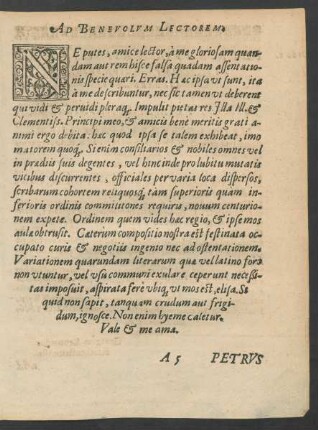 AD BENEVOLVM LECTOREM.
NE putes, amice lector, à me gloriosam quan-
dam aut rem hisce falsa quadam assentatio-
nis specie quæri. Erras. Hæc ipsa vt sunt, ita
à me describuntur, nec sic tamen vt deberent
qui vidi & peruidi pleraq. Impulit pietas res Illa Ill. &
Clementiss. Principi meo, & amicis bene meritis grati a-
nimi ergo debita: hæc quod ipsa se talem exhibeat, imo
maiorem quoq. Si enim consiliarios & nobiles omnes vel
in prædiis suis degentes, vel hinc inde pro lubitu mutatis
vicibus discurrentes, officiales per varia loca dispersos,
scribarum cohortem reliquosq, tam superioris quam in-
ferioris ordinis commilitones requiras, nouum centurio-
nem expete. Ordinem quem vides hæc regio, & ipse mos
aulæ obtrusit. Cæterum compositio nostra est festinata oc-
cupato curis & negotiis ingenio nec ad ostentationem.
Variationem quarundam literarum quæ vel latino foro
non vtuntur, vel vsu communi exulare ceperunt necessi-
tas imposuit, aspirata ferè vbiq, vt mos est, elisa. Si
quid non sapit, tanquam crudum aut frigi-
dum, ignosce. Non enim hyeme caletur.
Vale & me ama.
A 5 PETRVS